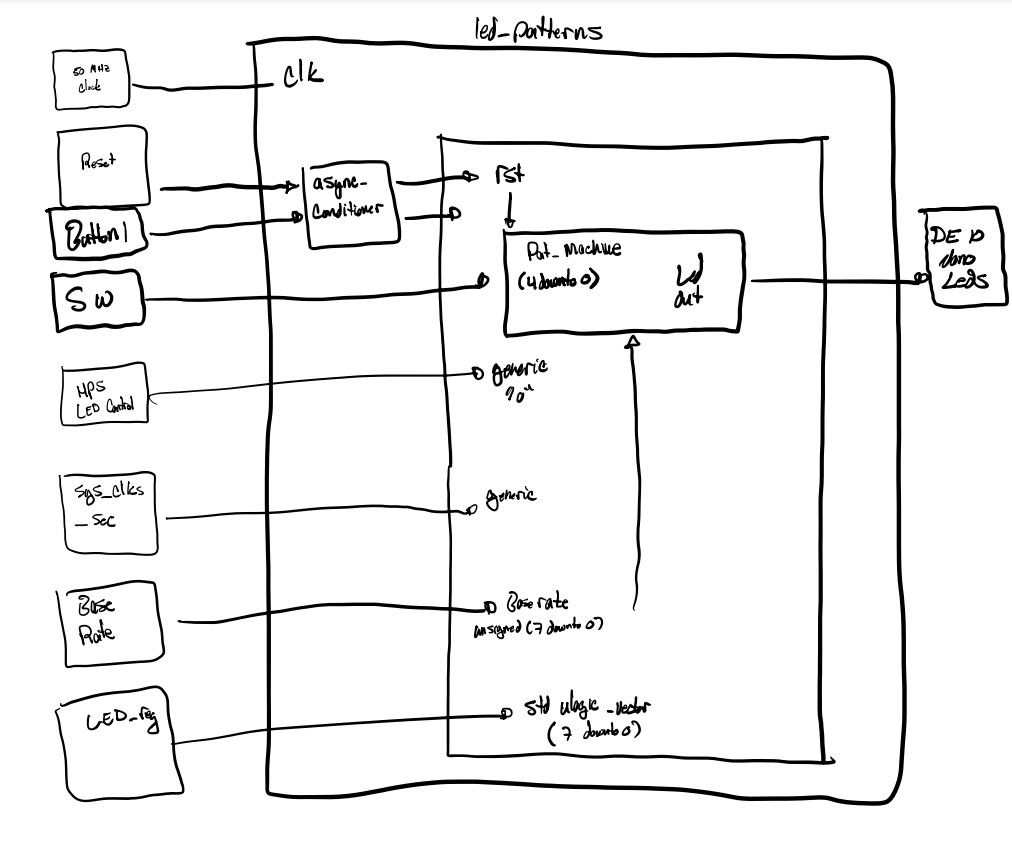 led_patterns
50 MHz
Clock
clk
Reset
async_
Conditioner
rst
Button1
Pat_Machine
(4 downto 0)
led
out
DE 10
Nano
Leds
SW
HPS
LED Control
generic
Sys_clks
_ sec
generic
Base
Rate
Base rate
unsigned (7 downto 0)
LED_reg
std ulogic_vector
(7 downto 0)